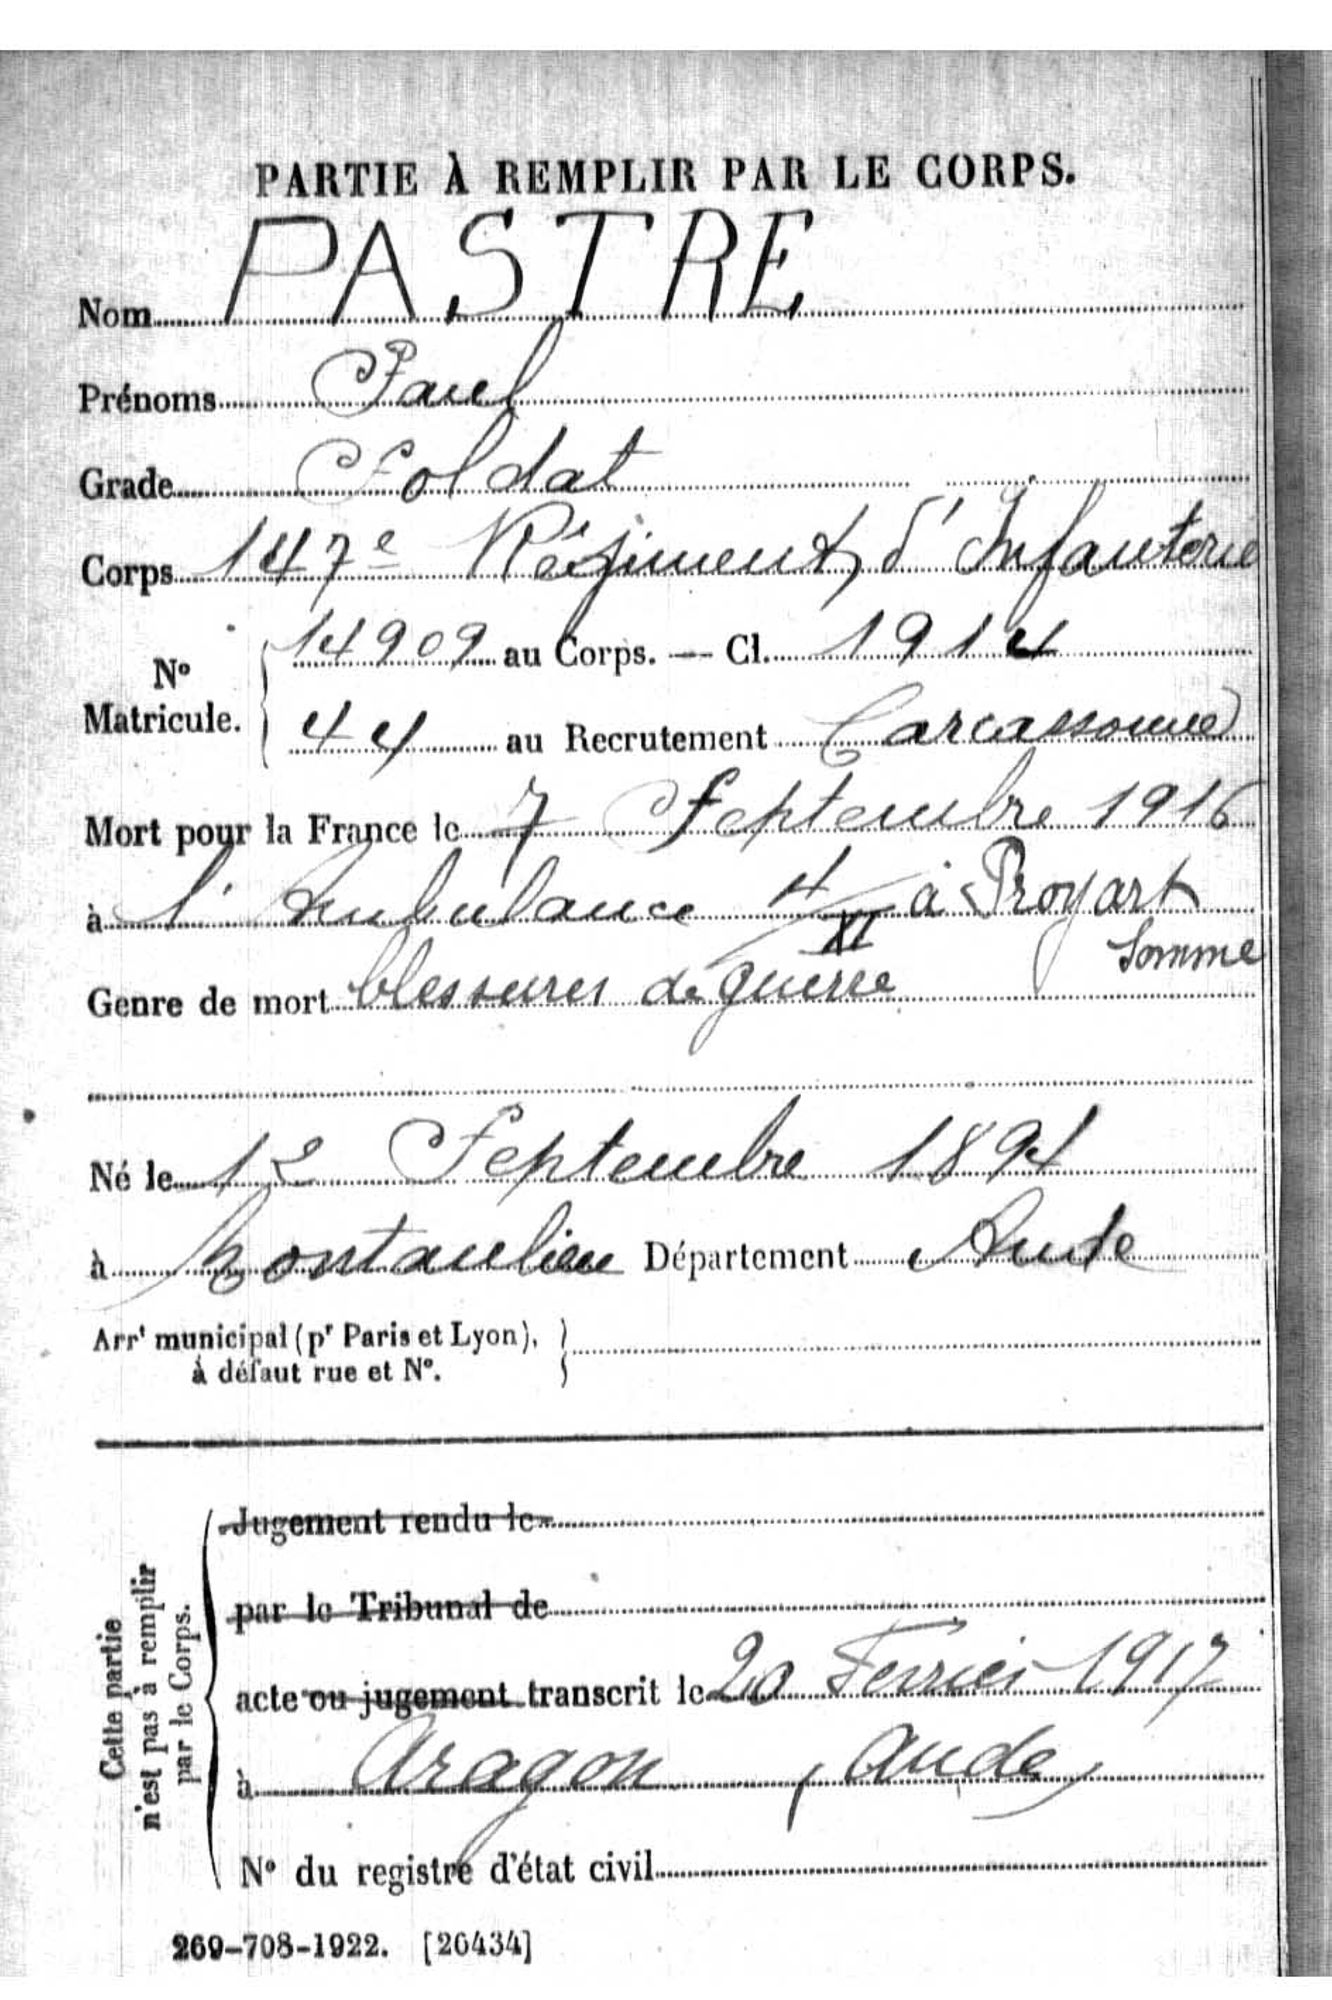 PARTIE À REMPLIR PAR LE CORPS.
Nom PASTRE
Prénoms Paul
Grade Soldat
Corps 147e Régiment d'Infanterie
No Matricule. { 14909 au Corps. — Cl. 1914
44 au Recrutement Carcassonne
Mort pour la France le 7 Septembre 1916
à l'Ambulance 4/XI à Proyart
Somme
Genre de mort blessures de guerre
Né le 12 Septembre 1894
à Montaulieu Département Aude
Arrt municipal (pr Paris et Lyon), }
à défaut rue et No.
Cette partie
n'est pas à remplir
par le Corps.
Jugement rendu le
par le Tribunal de
acte ou jugement transcrit le 20 Fevrier 1917
à Aragon, Aude
No du registre d'état civil
269-708-1922. [26434]